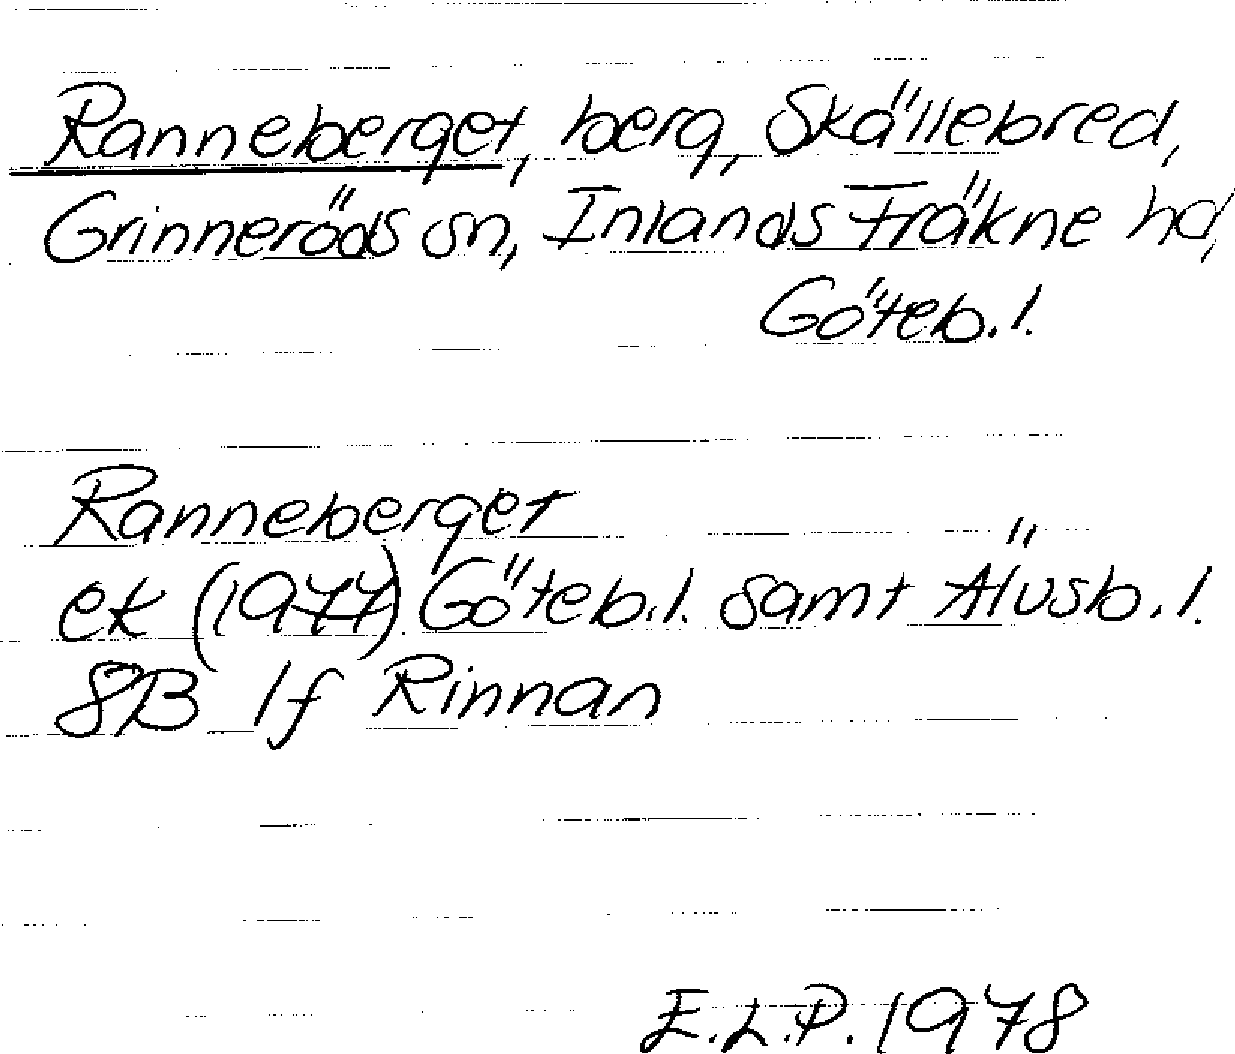 Ranneberget, berg, Skällebred,
Grinneröds sn, Inlands Fräkne hd,
Göteb. l.
Ranneberget
ek (1977) Göteb. l. samt Älvsb. l.
8B 1f Rinnan
E.L.P. 1978